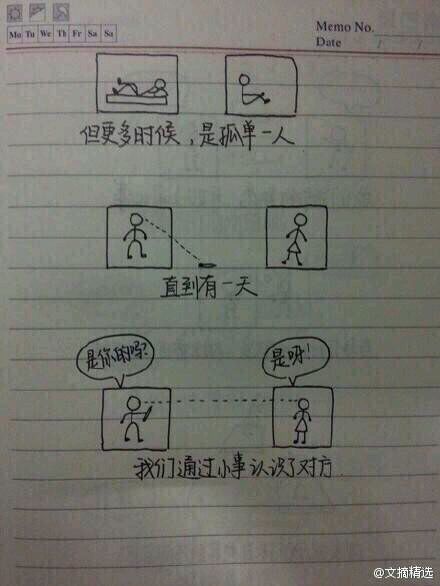 Memo No.
Mo Tu We Th Fr Sa Su
Date / /
但更多时候，是孤单一人
直到有一天
是你的吗?
是呀!
我们通过小事认识了对方
@文摘精选